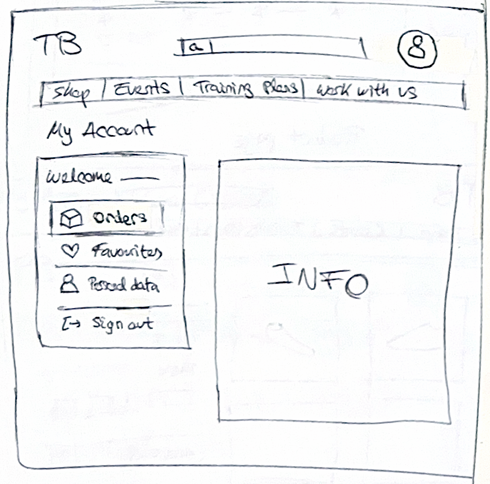 TB
Shop | Events | Training Plans | Work with us
My Account
Welcome
Orders
Favourites
Personal data
Sign out
INFO